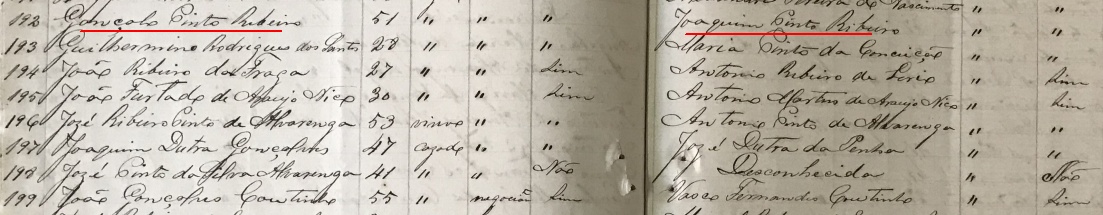 192 Gonçalo Pinto Ribeiro 51 " " " Joaquim Pinto Ribeiro " "
193 Guilhermino Rodrigues dos Santos 28 " " " Maria Pinto da Conceição " "
194 João Ribeiro da Fraga 27 " " Sim Antonio Ribeiro de " Sim
195 João Furtado de Araujo Nico 30 " " Sim Antonio Martins de Araujo Nico " Sim
196 José Ribeiro Pinto de Alvarenga 53 viuvo " " Antonio Pinto de Alvarenga " "
197 Joaquim Dutra Gonçalves 47 cazado " " José Dutra da Penha " "
198 José Pinto da Silva Alvarenga 41 " " Não Desconhecido " Não
199 João Gonçalves Coutinho 55 " negocio Sim Vasco Fernandes Coutinho " Sim